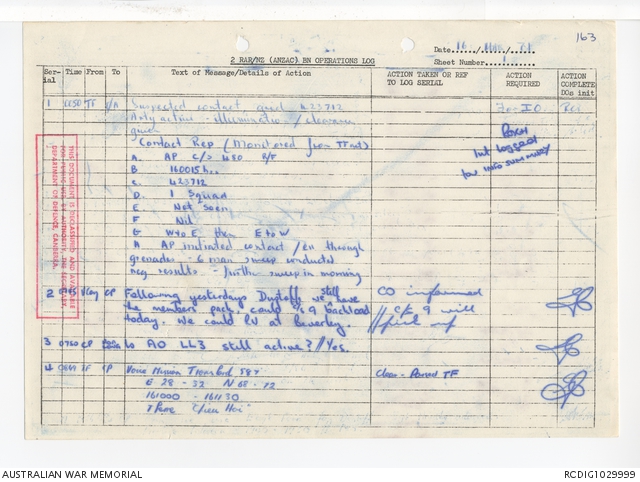 163
Date 16 / MAR / 71
2 RAR/NZ (ANZAC) BN OPERATIONS LOG
Sheet Number 1
Ser-ial Time From To Text of Message/Details of Action ACTION TAKEN OR REF TO LOG SERIAL ACTION REQUIRED ACTION COMPLETE DOs init
1 0050 TF Suspected contact grid 423712 For IO
Arty active - illumination / clearance
given
Contact Rep (Monitored from TF net)
A. AP C/S 480
B 160015H
C. 423712
D. 1 Squad
E Not Seen
F Nil
G W to E then E to W
H AP initiated contact / en through
grenades - 6 man sweep conducted
neg results - further sweep in morning
Int logged
for INFO SUMMARY
2 CP Following yesterdays Dustoff we still have
the members pack. Could C/S 9 backload
today. We could PU at Beverley.
CO informed
// C/S 9 will
pick up
3 0760 CP to AO LL3 still active? // Yes.
4 TF CP Voice Mission 587
E 28 - 32 N 68 - 72
161000 - 161130
Theme "Chieu Hoi"
Clear - Passed TF
THIS DOCUMENT IS DECLASSIFIED AND AVAILABLE
FOR PUBLIC USE BY AUTHORITY, THE SECRETARY
DEPARTMENT OF DEFENCE, CANBERRA.
AUSTRALIAN WAR MEMORIAL
RCDIG1029999